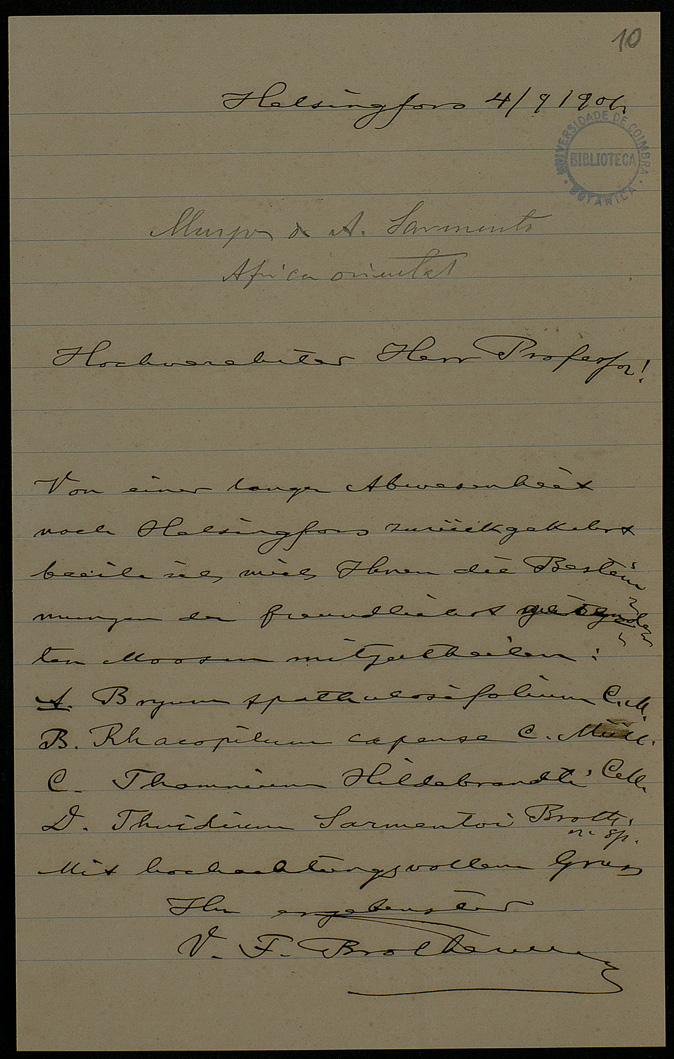 10
Helsingfors 4/9 1906
UNIVERSIDADE DE COIMBRA
BIBLIOTECA
BOTANICA
Musgos de A. Sarmento
Africa oriental
Hochverehrter Herr Professor!
Von einer langen Abwesenheit
nach Helsingfors zurückgekehrt
beeile ich mich Ihnen die Bestim
mungen der freundlichst
ten Moosen mitzutheilen:
A. Bryum spathulosifolium C. M.
B. Rhacopilum capense C. Müll.
C. Thamnium Hildebrandti C. M.
D. Thuidium Sarmentoi Broth.
n. sp.
Mit hochachtungsvollem Gruss
Ihr ergebenster
V. F. Brotherus